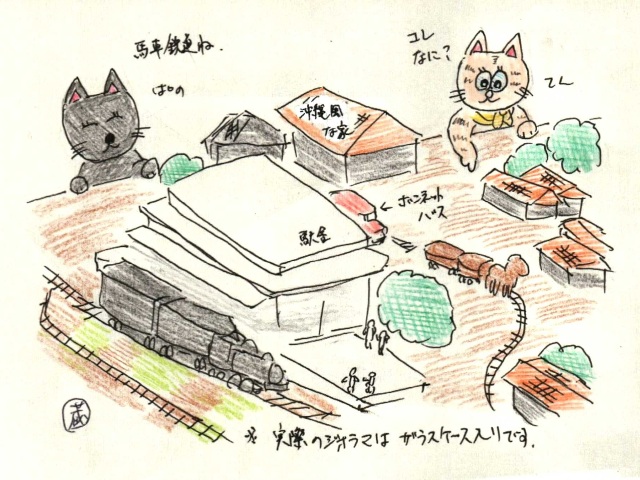 馬車鉄道ね.
ぱの
コレ
なに?
てん
沖縄風
な家
←ボンネット
バス
駅舎
蔵
※ 実際のジオラマは ガラスケース入りです.